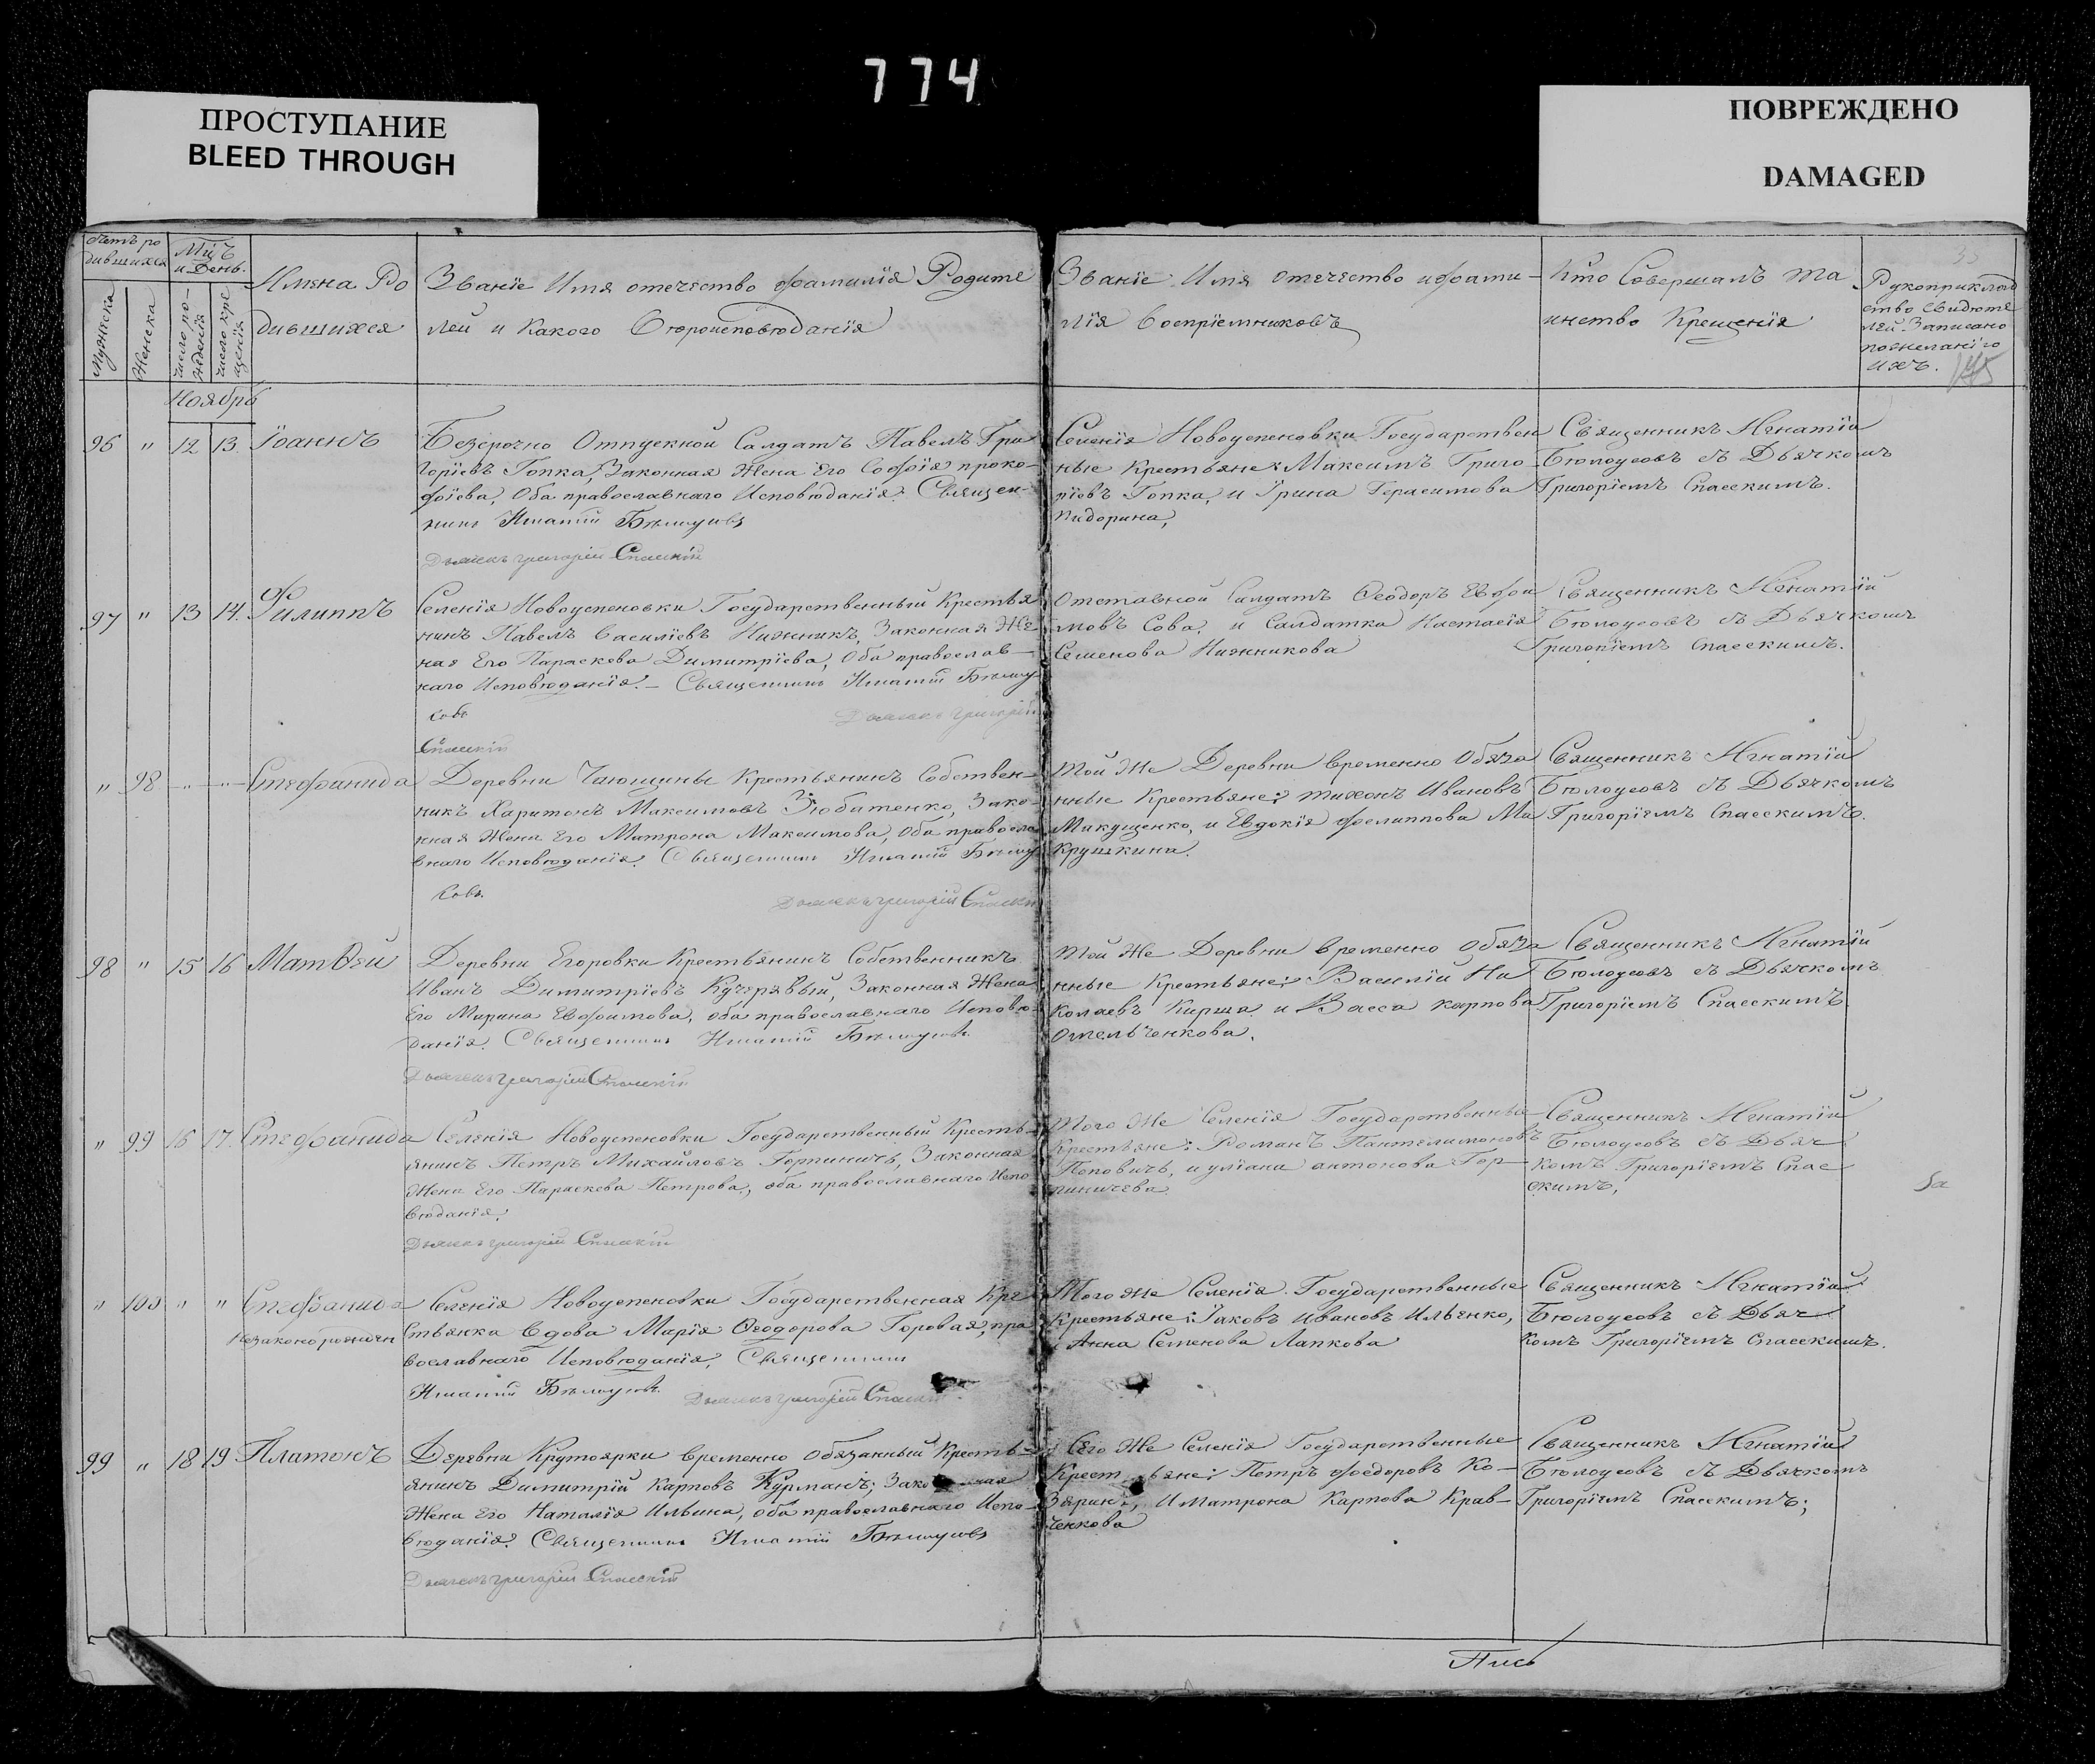 774
ПРОСТУПАНИЕ
BLEED THROUGH
ПОВРЕЖДЕНО
DAMAGED
Счетъ ро
дившихся
Мцъ
и День.
Мужеска
Женска
Число ро-
жденія
Число кре
щенія
Имена Ро
дившихся
Званіе Имя отечество фамилія Родите
лей и Какого Вѣроисповѣданія
Званіе Имя отечество и фами-
лія Воспріемниковъ
Кто Совершалъ та
инство Крещенія
Рукоприклад
ство Свидѣте
лей Записано
по желанію
ихъ.
Ноябрь
96 " 12 13. Іоаннъ
Безсрочно Отпускной Салдатъ Павелъ Гри
горіевъ Гопка, Законная Жена Его Софія проко-
фіева, Оба православнаго Исповѣданія. Священ-
никъ Игнатій Бѣлоусовъ
Дьячекъ григорій Спасскій
Селенія Новоуспеновки Государствен
ные Крестьяне: Максимъ Григо
ріевъ Гопка, и Ірина Герасимова
Пидорина,
Священникъ Игнатій
Бѣлоусовъ съ Дьячкомъ
Григоріемъ Спасскимъ.
97 " 13 14. Филиппъ
Селенія Новоуспеновки Государственный Крестья
нинъ Павелъ Василіевъ Нижникъ, Законная Же
на Его Параскева Димитріева, Оба православ-
наго Исповѣданія.- Священникъ Игнатій Бѣлоу
совъ
Дьячекъ григорій
Спасскій
Отставной Салдатъ Феодоръ Евфи
мовъ Сова, и Салдатка Настасія
Семенова Нижникова
Священникъ Игнатій
Бѣлоусовъ съ Дьячкомъ
Григоріемъ Спасскимъ.
" 98 " " Стефанида
Деревни Чающины Крестьянинъ Собствен-
никъ Харитонъ Максимовъ Зюбатенко, Зако-
нная Жена Его Матрона Максимова, Оба правосла
внаго Исповѣданія. Священникъ Игнатій Бѣлоу
совъ.
Дьячекъ григорій Спасскій
Той Же Деревни Временно Обяза
нные Крестьяне: Тихонъ Ивановъ
Микущенко, и Евдокія Филиппова Ма
Крушкина.
Священникъ Игнатій
Бѣлоусовъ съ Дьячкомъ
Григоріемъ Спасскимъ.
98 " 15 16 Матѳей
Деревни Егоровки Крестьянинъ Собственникъ
Иванъ Димитріевъ Кучерявый, Законная Жена
Его Марина Евфимова, Оба православнаго Исповѣ-
данія. Священникъ Игнатій Бѣлоусовъ.
Дьячекъ григорій Спасскій
Той Же Деревни Временно Обяза
нные Крестьяне: Василій Ни
колаевъ Кирша и Васса Карпова
Омельченкова.
Священникъ Игнатій
Бѣлоусовъ съ Дьячкомъ
Григоріемъ Спасскимъ.
" 99 16 17. Стефанида
Селенія Новоуспеновки Государственный Кресть-
янинъ Петръ Михайловъ Горпиничъ, Законная
Жена Его Параскева Петрова, оба православнаго Испо
вѣданія.
Дьячекъ григорій Спасскій
Того Же Селенія Государственные
Крестьяне: Романъ Пантелимоновъ
Поповичъ, и уліана антонова Гор-
пиничева
Священникъ Игнатій
Бѣлоусовъ съ Дьяч
комъ Григоріемъ Спас
скимъ,
" 100 " " Стефанида
Незаконорожден
Селенія Новоуспеновки Государственная Кре
стьянка Вдова Марія Ѳеодорова Горовая, пра
вославнаго Исповѣданія, Священникъ
Игнатій Бѣлоусовъ.
Дьячекъ григорій Спасскій
Того Же Селенія Государственные
Крестьяне: Іаковъ Ивановъ Ильенко,
Анна Семенова Лапкова
Священникъ Игнатій
Бѣлоусовъ съ Дьяч
комъ Григоріемъ Спасскимъ.
99 " 18 19 Платонъ
Деревни Крутоярки Временно Обязанный Кресть-
янинъ Димитрій Карповъ Курманъ; Законная
Жена Его Наталія Ильина, Оба православнаго Испо-
вѣданія. Священникъ Игнатій Бѣлоусовъ
Дьячекъ григорій Спасскій
Сего Же Селенія Государственные
Крестьяне: Петръ Федоровъ Ко-
зяринъ, и Матрона Карпова Крав-
ченкова
Священникъ Игнатій
Бѣлоусовъ съ Дьячкомъ
Григоріемъ Спасскимъ;